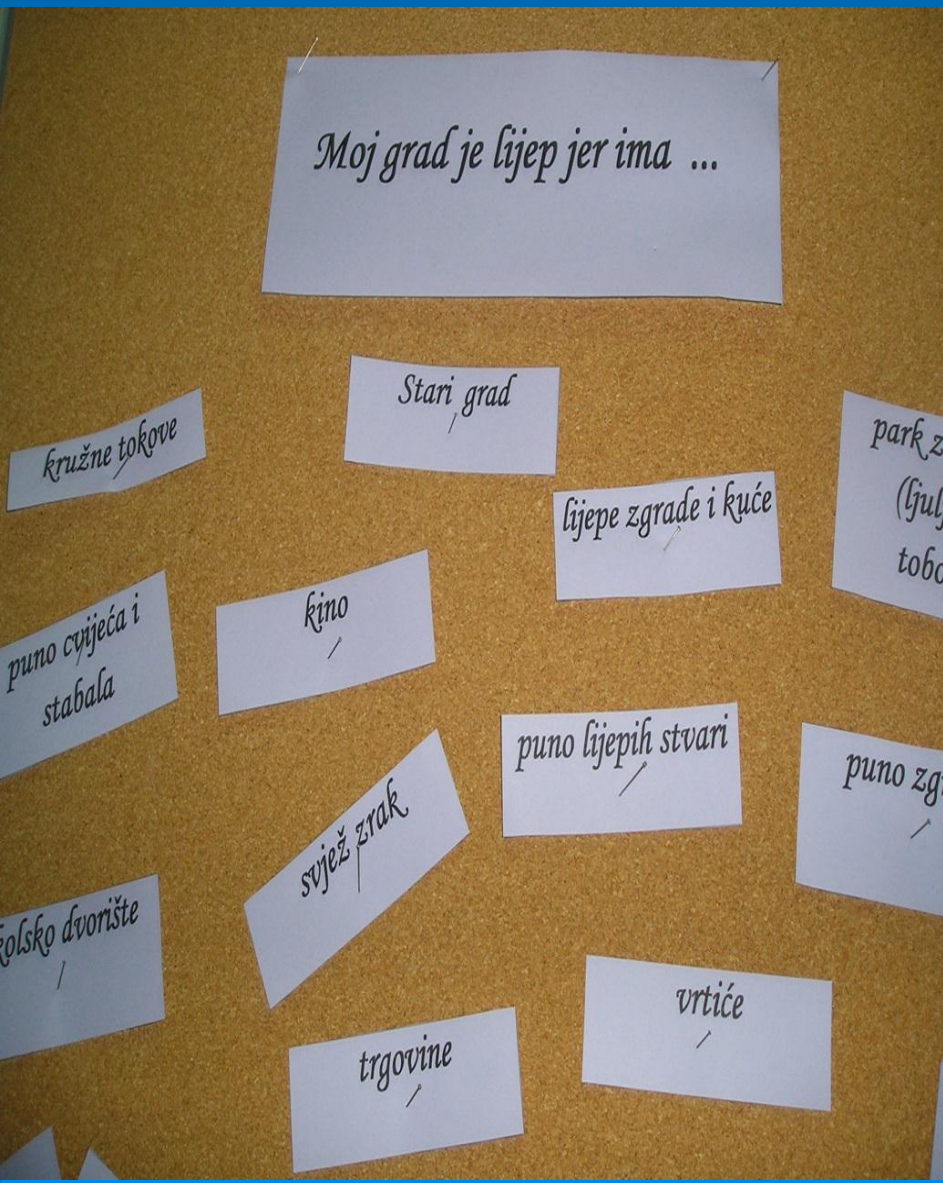 Moj grad je lijep jer ima ...
Stari grad
kružne tokove
park
lijepe zgrade i kuće
kino
puno cvijeća i
stabala
puno lijepih stvari
puno
svjež zrak
dvorište
vrtiće
trgovine